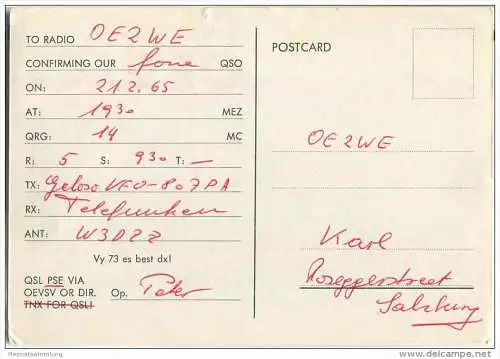 TO RADIO OE2WE
CONFIRMING OUR fone QSO
ON: 21.2.65
AT: 1930 MEZ
QRG: 14 MC
R: 5 S: 9 30 T: —
TX: Geloso VFO-807PA
RX: Telefunken
ANT: W3DZZ
Vy 73 es best dx!
QSL PSE VIA
OEVSV OR DIR. Op. Peter
TNX FOR QSL!
POSTCARD
OE2WE
Karl
Roseggerstreet
Salzburg